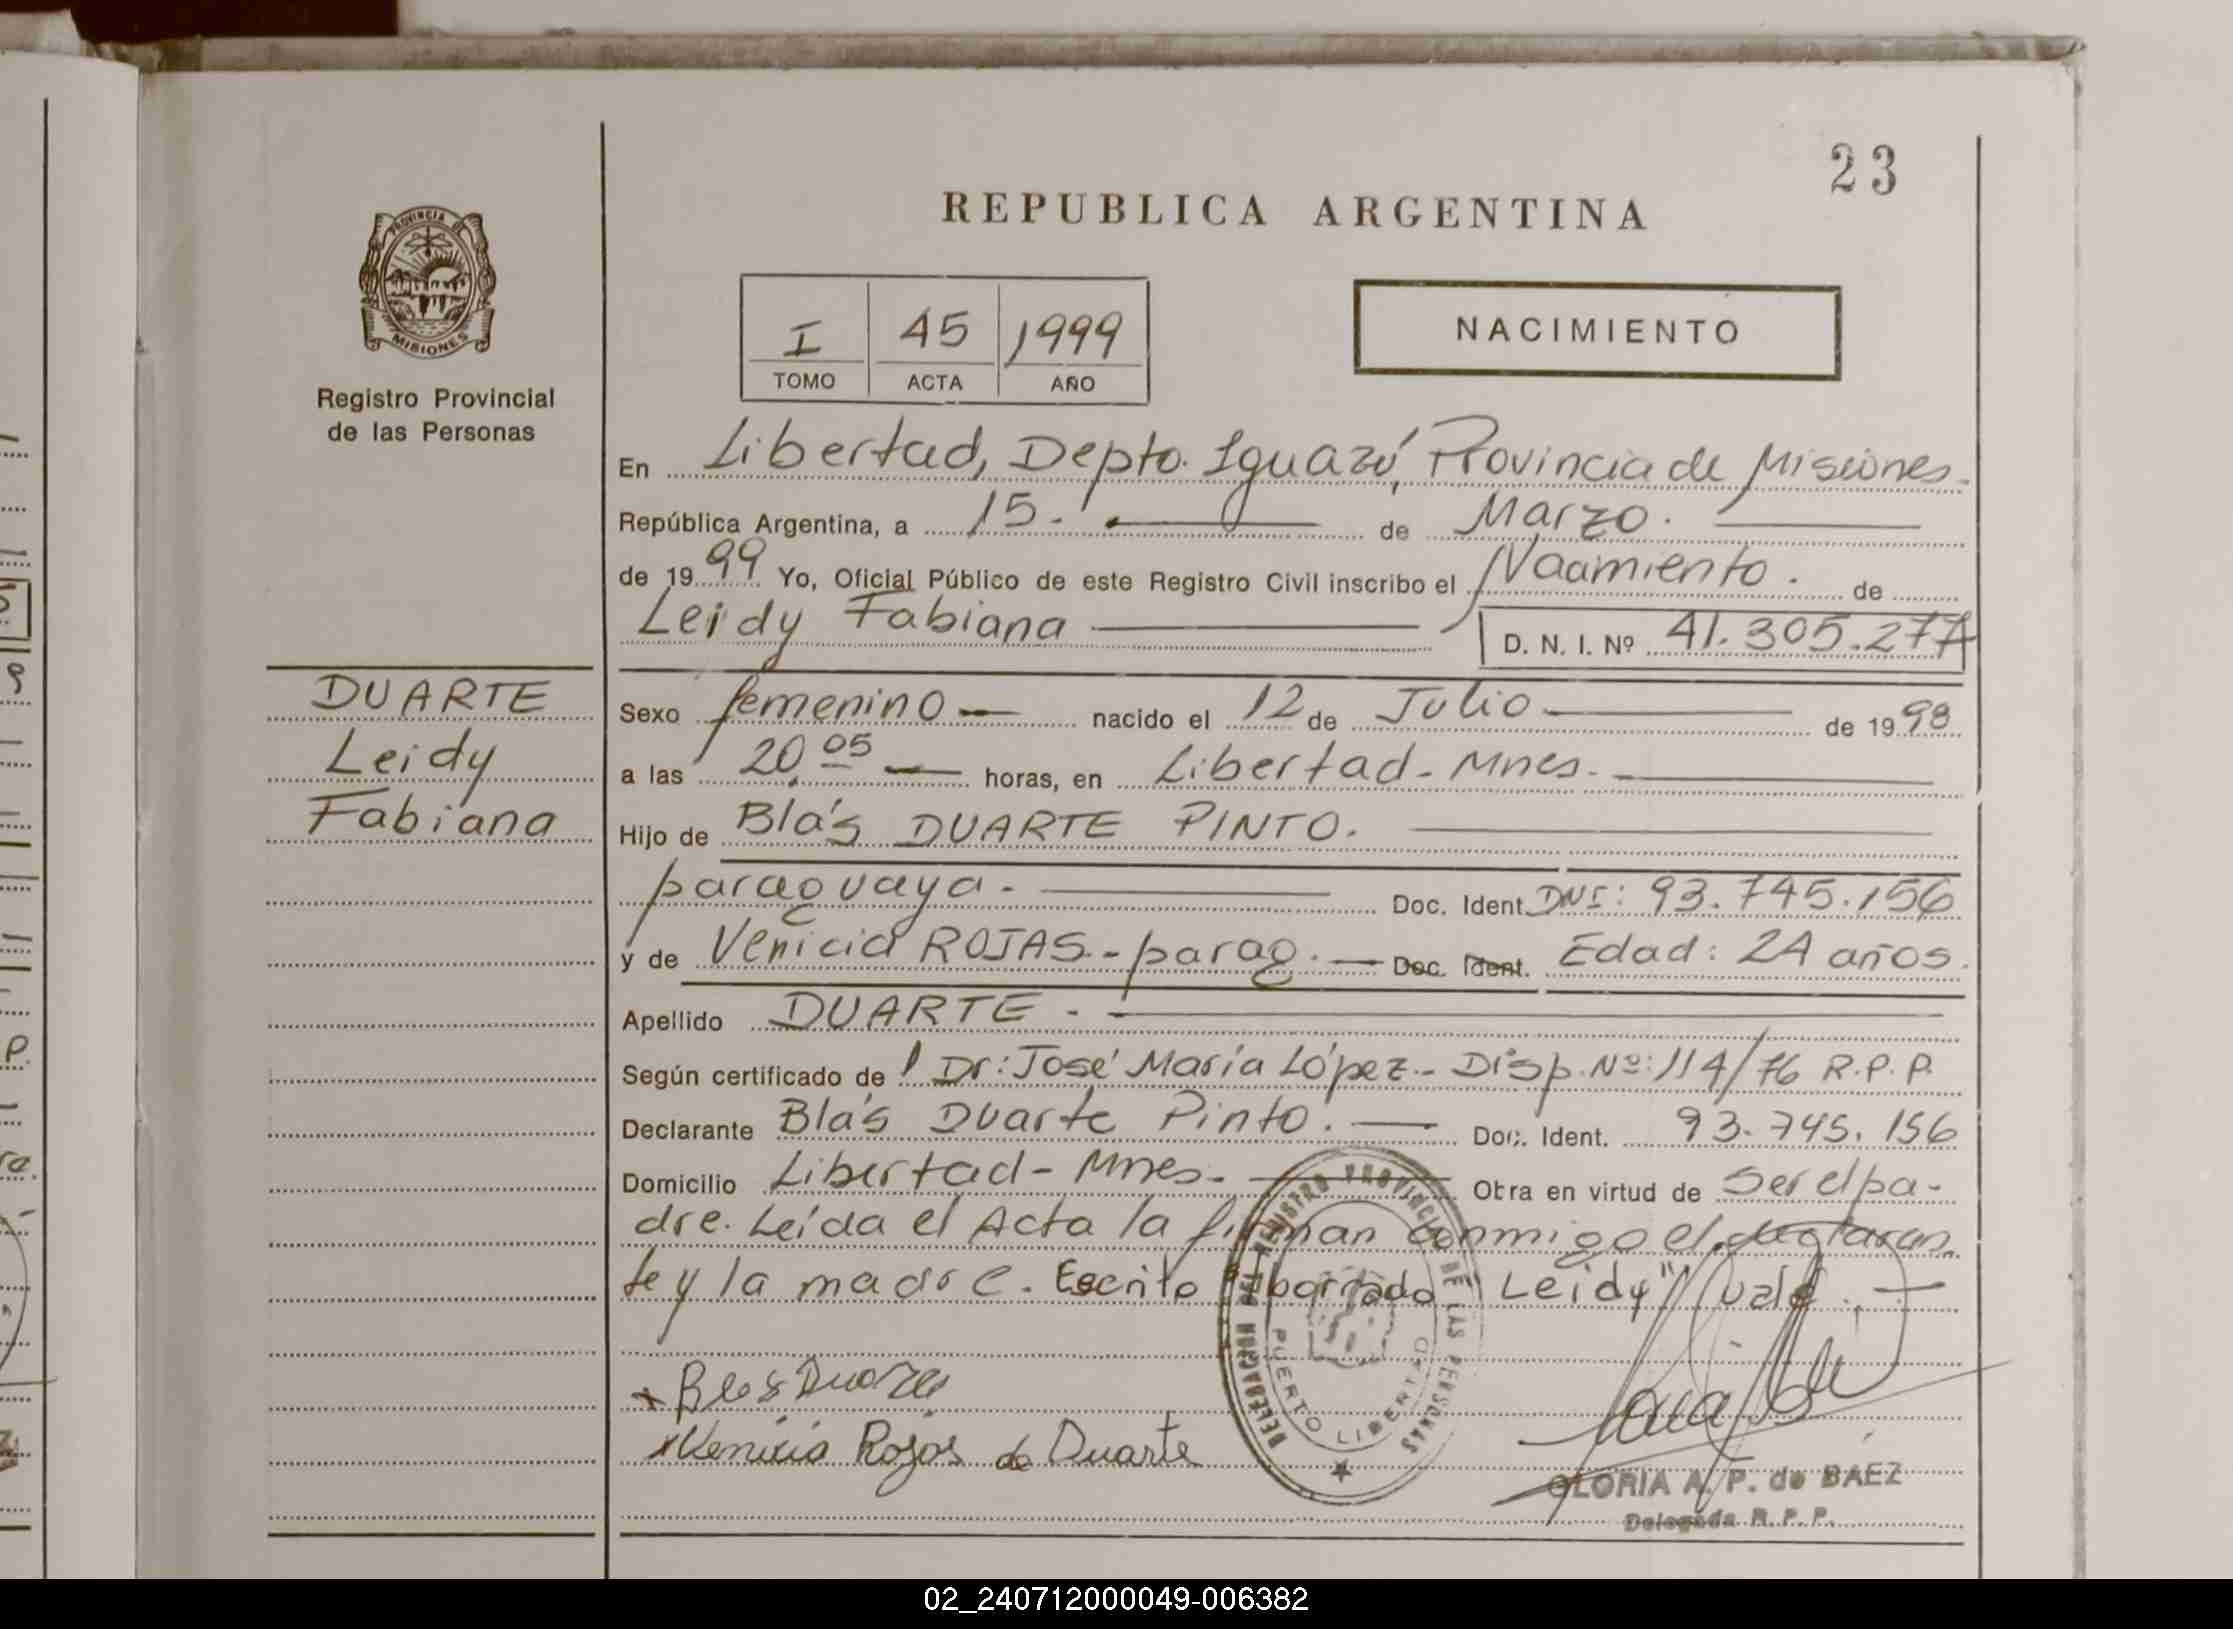 23
REPUBLICA ARGENTINA
PROVINCIA DE MISIONES
Registro Provincial
de las Personas
I 45 1999
TOMO ACTA AÑO
NACIMIENTO
En Libertad, Depto. Iguazú, Provincia de Misiones.
República Argentina, a 15. de Marzo.
de 1999 Yo, Oficial Público de este Registro Civil inscribo el Nacimiento. de
Leidy Fabiana D. N. I. Nº 41.305.277
DUARTE
Leidy
Fabiana
Sexo femenino nacido el 12 de Julio de 1998
a las 20.05 horas, en Libertad - Mnes.
Hijo de Blás DUARTE PINTO.
paraguaya. Doc. Ident. DNI: 93.745.156
y de Venicia ROJAS - parag. Doc. Ident. Edad: 24 años.
Apellido DUARTE.
Según certificado de Dr: José María López - Disp. Nº: 114/76 R.P.P.
Declarante Blás Duarte Pinto. Doc. Ident. 93.745.156
Domicilio Libertad - Mnes. Obra en virtud de ser el pa-
dre. Leída el Acta la firman conmigo el declaran
te y la madre. Escrito s/borrado "Leidy" Vale.
x Blas Duarte
x Venicia Rojas de Duarte
DELEGACION DEL REGISTRO PROVINCIAL DE LAS PERSONAS
PUERTO LIBERTAD
GLORIA A. P. de BAEZ
Delegada R. P. P.
02_240712000049-006382